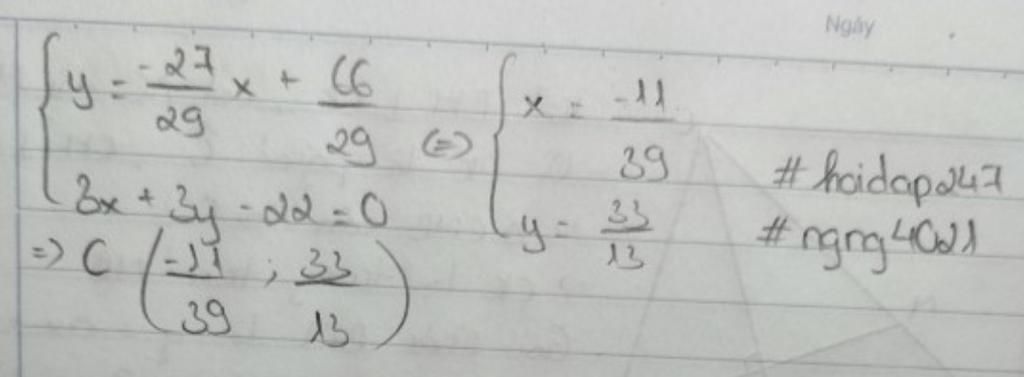 Ngày
{ y = \frac{-27}{29} x + \frac{66}{29} <=> { x = \frac{-11}{39}
3x + 3y - 22 = 0 y = \frac{33}{13}
#hoidap247
#ngng4021
=> C ( \frac{-11}{39} ; \frac{33}{13} )